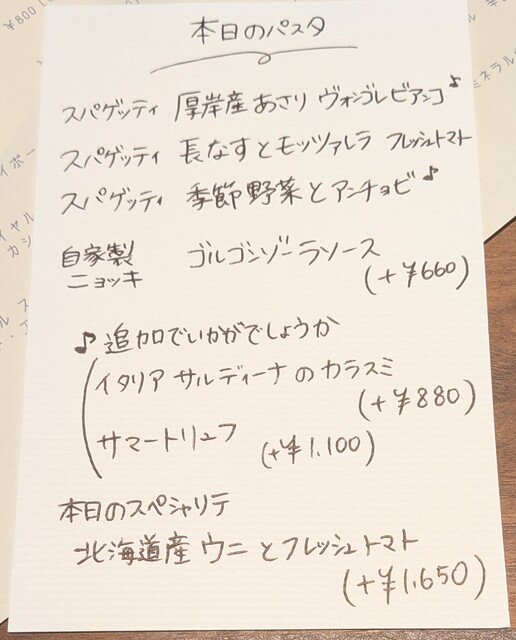 ¥800
本日のパスタ
スパゲッティ 厚岸産 あさり ヴォンゴレビアンコ♪
スパゲッティ 長なすとモッツァレラ フレッシュトマト
スパゲッティ 季節野菜とアンチョビ♪
自家製
ニョッキ ゴルゴンゾーラソース
(+¥660)
♪追加でいかがでしょうか
イタリア サルディーナのカラスミ
(+¥880)
サマートリュフ (+¥1,100)
本日のスペシャリテ
北海道産ウニとフレッシュトマト
(+¥1,650)